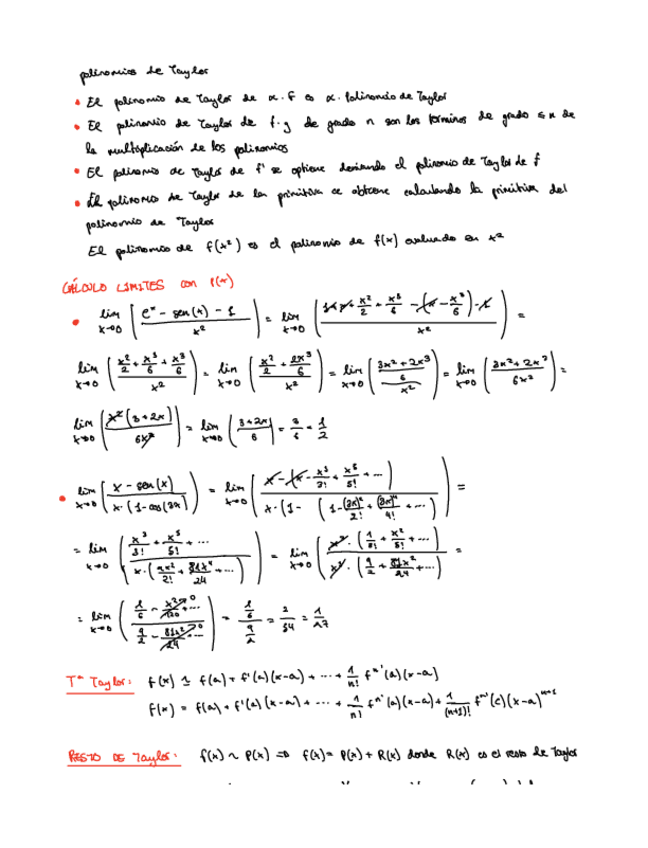 polinomios de Taylor
• El polinomio de Taylor de α·f es α·Polinomio de Taylor
• El polinomio de Taylor de f·g de grado n son los términos de grado ≤ n de
la multiplicación de los polinomios
• El polinomio de Taylor de f' se optiene derivando el polinomio de Taylor de f
• El polinomio de Taylor de la primitiva se obtiene calculando la primitiva del
polinomio de Taylor
El polinomio de f(x²) es el polinomio de f(x) evaluado en x²
CÁLCULO LÍMITES con P(x)
• lim x→0 [(e^x - sen(x) - 1)/x²] = lim x→0 ((1+x+x²/2+x³/6-(x-x³/6)-1)/x²) =
lim x→0 ((x²/2+x³/6+x³/6)/x²) = lim x→0 ((x²/2+2x³/6)/x²) = lim x→0 (((3x²+2x³)/6)/x²) = lim x→0 ((3x²+2x³)/6x²) =
lim x→0 (x²(3+2x)/6x²) = lim x→0 ((3+2x)/6) = 3/6 = 1/2
• lim x→0 ((x-sen(x))/(x·(1-cos(3x)))) = lim x→0 ((x-(x-x³/3!+x⁵/5!+...))/(x·(1-(1-(3x)²/2!+(3x)⁴/4!+...)))) =
= lim x→0 ((x³/3!+x⁵/5!+...)/(x·(9x²/2!+81x⁴/24+...))) = lim x→0 (x³·(1/3!+x²/5!+...)/(x³·(9/2+81x²/24+...))) =
= lim x→0 ((1/6-x²/120+...→0)/(9/2-81x²/24...→0)) = (1/6)/(9/2) = 2/54 = 1/27
Tª Taylor: f(x) ≃ f(a)+f'(a)(x-a)+...+1/n! fⁿ'(a)(x-a)
f(x) = f(a)+f'(a)(x-a)+...+1/n! fⁿ'(a)(x-a)+1/(n+1)! fⁿ'(c)(x-a)ⁿ⁺¹
RESTO DE Taylor: f(x) ~ P(x) => f(x) = P(x) + R(x) donde R(x) es el resto de Taylor